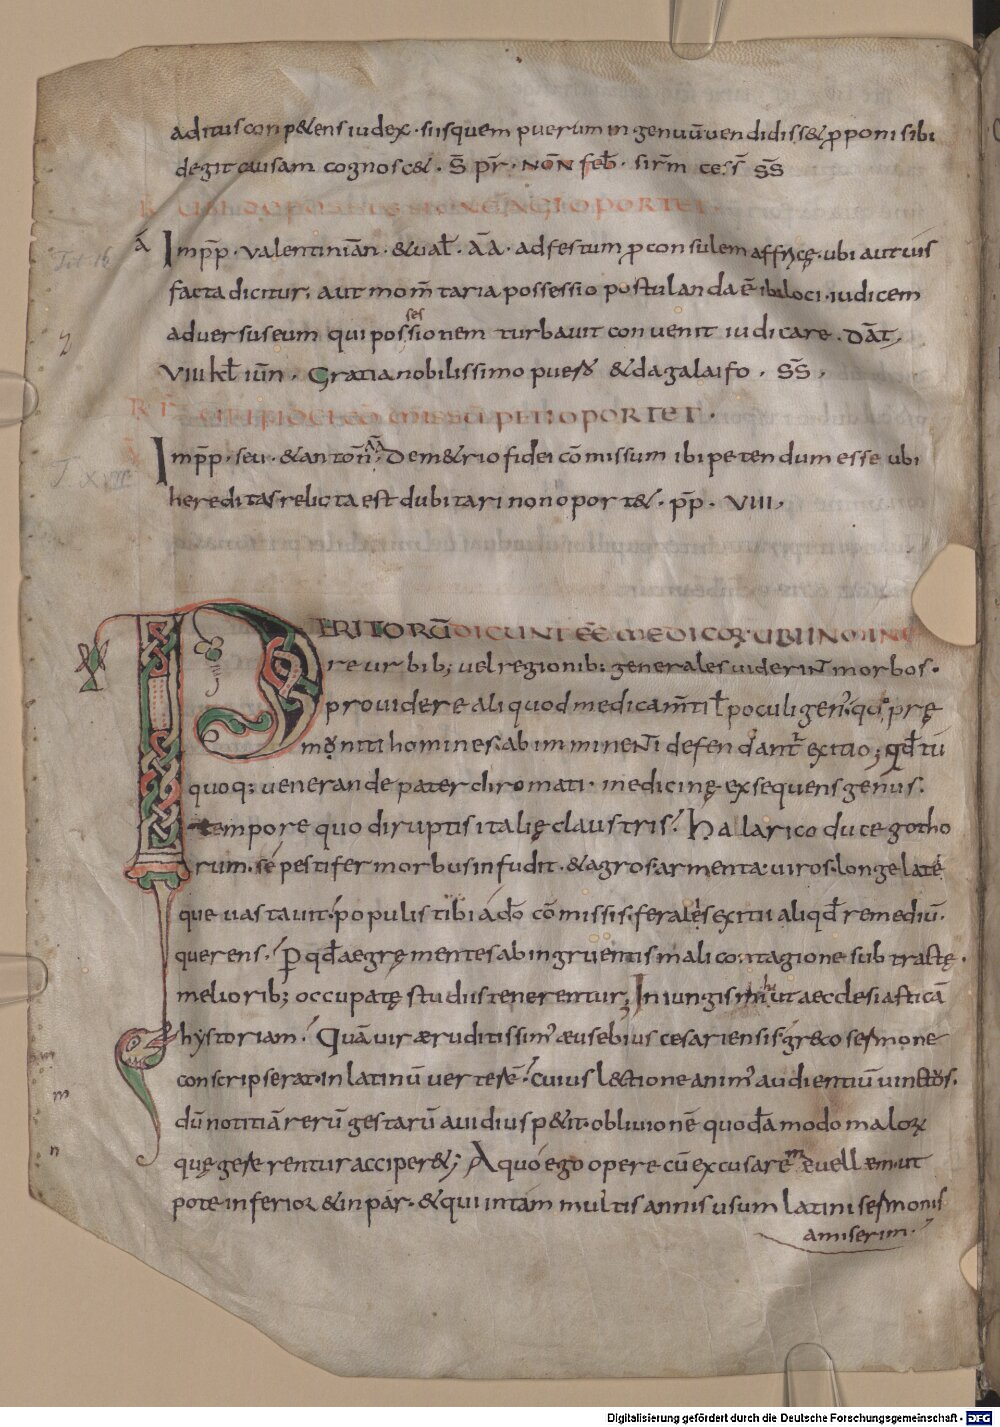 aditus conp&ens iudex · si is quem puerum ingenuũ uendidiss& p̱poni sibi
degit causam cognosc& · S̃ pr̃ · NON̄ feb̃ · sirm̃ ces̃ s̃s̃
R UBI DE POSSESSIONE AGI OPORTET
á Impp̄ · valentiniañ · & ual̃ · ĀĀ · ad festum p̱consulem affrycę · ubi aut uis
facta dicitur · aut mom̃taria possessio postulanda ē ibi loci · iudicem
aduersus eum qui possionem turbauit conuenit iudicare · Dat̄
ses
VIII kl̃ iuñ · Gratiano nobilissimo puero & dagalaifo · s̃s̃ ·
R R UBI FIDEICOMMISSU PETI OPORTET ·
Impp̄ · seu · & antoñ · ĀĀ Dem&rio fidei cōmissum ibi petendum esse ubi
hereditas relicta est dubitari non oport& · pp̄ · VIII ·
Tit 16
T. XVII
PERITORŪ DICUNT EĒ MEDICOꝜ UBI INMINE
re urbib; uel regionib; generales uiderint morbos ·
prouidere aliquod medicam̃ti ł poculi gen' · quo prę
moniti homines · ab imminenti defendant' exitio; qd̃ tu
quoq; uenerande pater chromati · medicinę exsequens genus ·
tempore quo diruptis italię claustris · Hallarico duce gotho
rum · se pestifer morbus infudit · & agros · armenta · uiros · longe late
que uastauit · populis tibi a dō cōmissis · feralis exitii aliqd̃ remediū ·
querens · P̱ qd̃ aegrę mentes ab ingruentis mali contagione subtractę ·
meliorib; occupatę studiis tenerentur; Iniungis mihi ut aecclesiasticā
hystoriam · Quā uir æruditissim' æusebius cesariensis · gr&co sermone
conscripserat · in latinū uerterē · cuius lectione anim' audientiū uinctus ·
dū notitiā rerū gestarū auidius p&it · obliuionē quodā modo maloꝝ
quę gererentur acciper&; A quo ego opere cū excusare me uellem ut
pote inferior & inpar · & qui in tam multis annis usum latini sermonis
amiserim ·
Digitalisierung gefördert durch die Deutsche Forschungsgemeinschaft - DFG